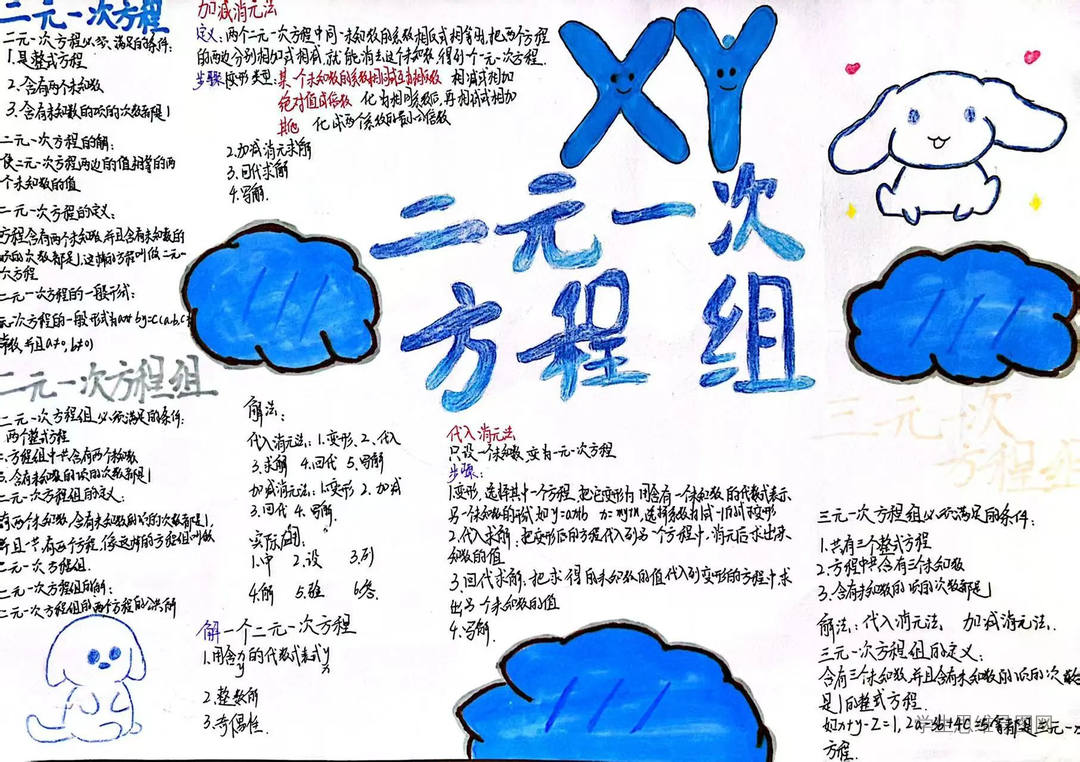 二元一次方程
二元一次方程必须满足的条件:
1.是整式方程
2.含有两个未知数
3.含有未知数的项的次数都是1
二元一次方程的解:
使二元一次方程两边的值相等的两
个未知数的值
二元一次方程的定义:
方程含有两个未知数,并且含有未知数的
的次数都是1,这样的方程叫做二元一
次方程
二元一次方程的一般形式:
元一次方程的一般形式为ax+by=c(a.b.c
常数,并且a≠0,b≠0)
二元一次方程组
二元一次方程组必须满足的条件:
两个整式方程
方程组中共含有两个未知数
含有未知数的项的次数都是1
二元一次方程组的定义:
有两个未知数,含有未知数的项的次数都是1,
并且一共有两个方程,像这样的方程组叫做
二元一次方程组.
二元一次方程组的解:
二元一次方程组的两个方程的公共解
加减消元法
定义:两个二元一次方程中同一未知数的系数相反或相等时,把两个方程
的两边分别相加或相减,就能消去这个未知数,得到一个一元一次方程.
步骤:变形 类型:某一个未知数的系数相同或互为相反数 相减或相加
绝对值成倍数 化为相同系数后,再相减或相加
其他 化成两个系数的最小公倍数
2.加减消元求解
3.回代求解
4.写解.
XY
二元一次
方程组
解法:
代入消元法:1.变形 2.代入
3.求解 4.回代 5.写解
加减消元法:1.变形 2.加减
3.回代 4.写解.
实际应用:
1.审 2.设 3.列
4.解 5.验 6.答.
解一个二元一次方程
1.用含x的代数式表示y
y x
2.整数解
3.奇偶性.
代入消元法
只设一个未知数,变为一元一次方程
步骤:
1.变形,选择其中一个方程,把它变形为用含有一个未知数的代数式表示
另一个未知数的形式 如y=ax+b x=my+n,选择系数
2.代入求解:把变形后的方程代入到另一个方程中,消元后求出未
知数的值
3.回代求解:把求得的未知数的值代入到变形的方程中求
出另一个未知数的值
4.写解.
三元一次
方程组
三元一次方程组必须满足的条件:
1.共有三个整式方程
2.方程中共含有三个未知数
3.含有未知数的项的次数都是1
解法:代入消元法, 加减消元法.
三元一次方程组的定义:
含有三个未知数,并且含有未知数的项的次数
是1的整式方程.
如x+y-z=1, 等都是三元一次
方程.